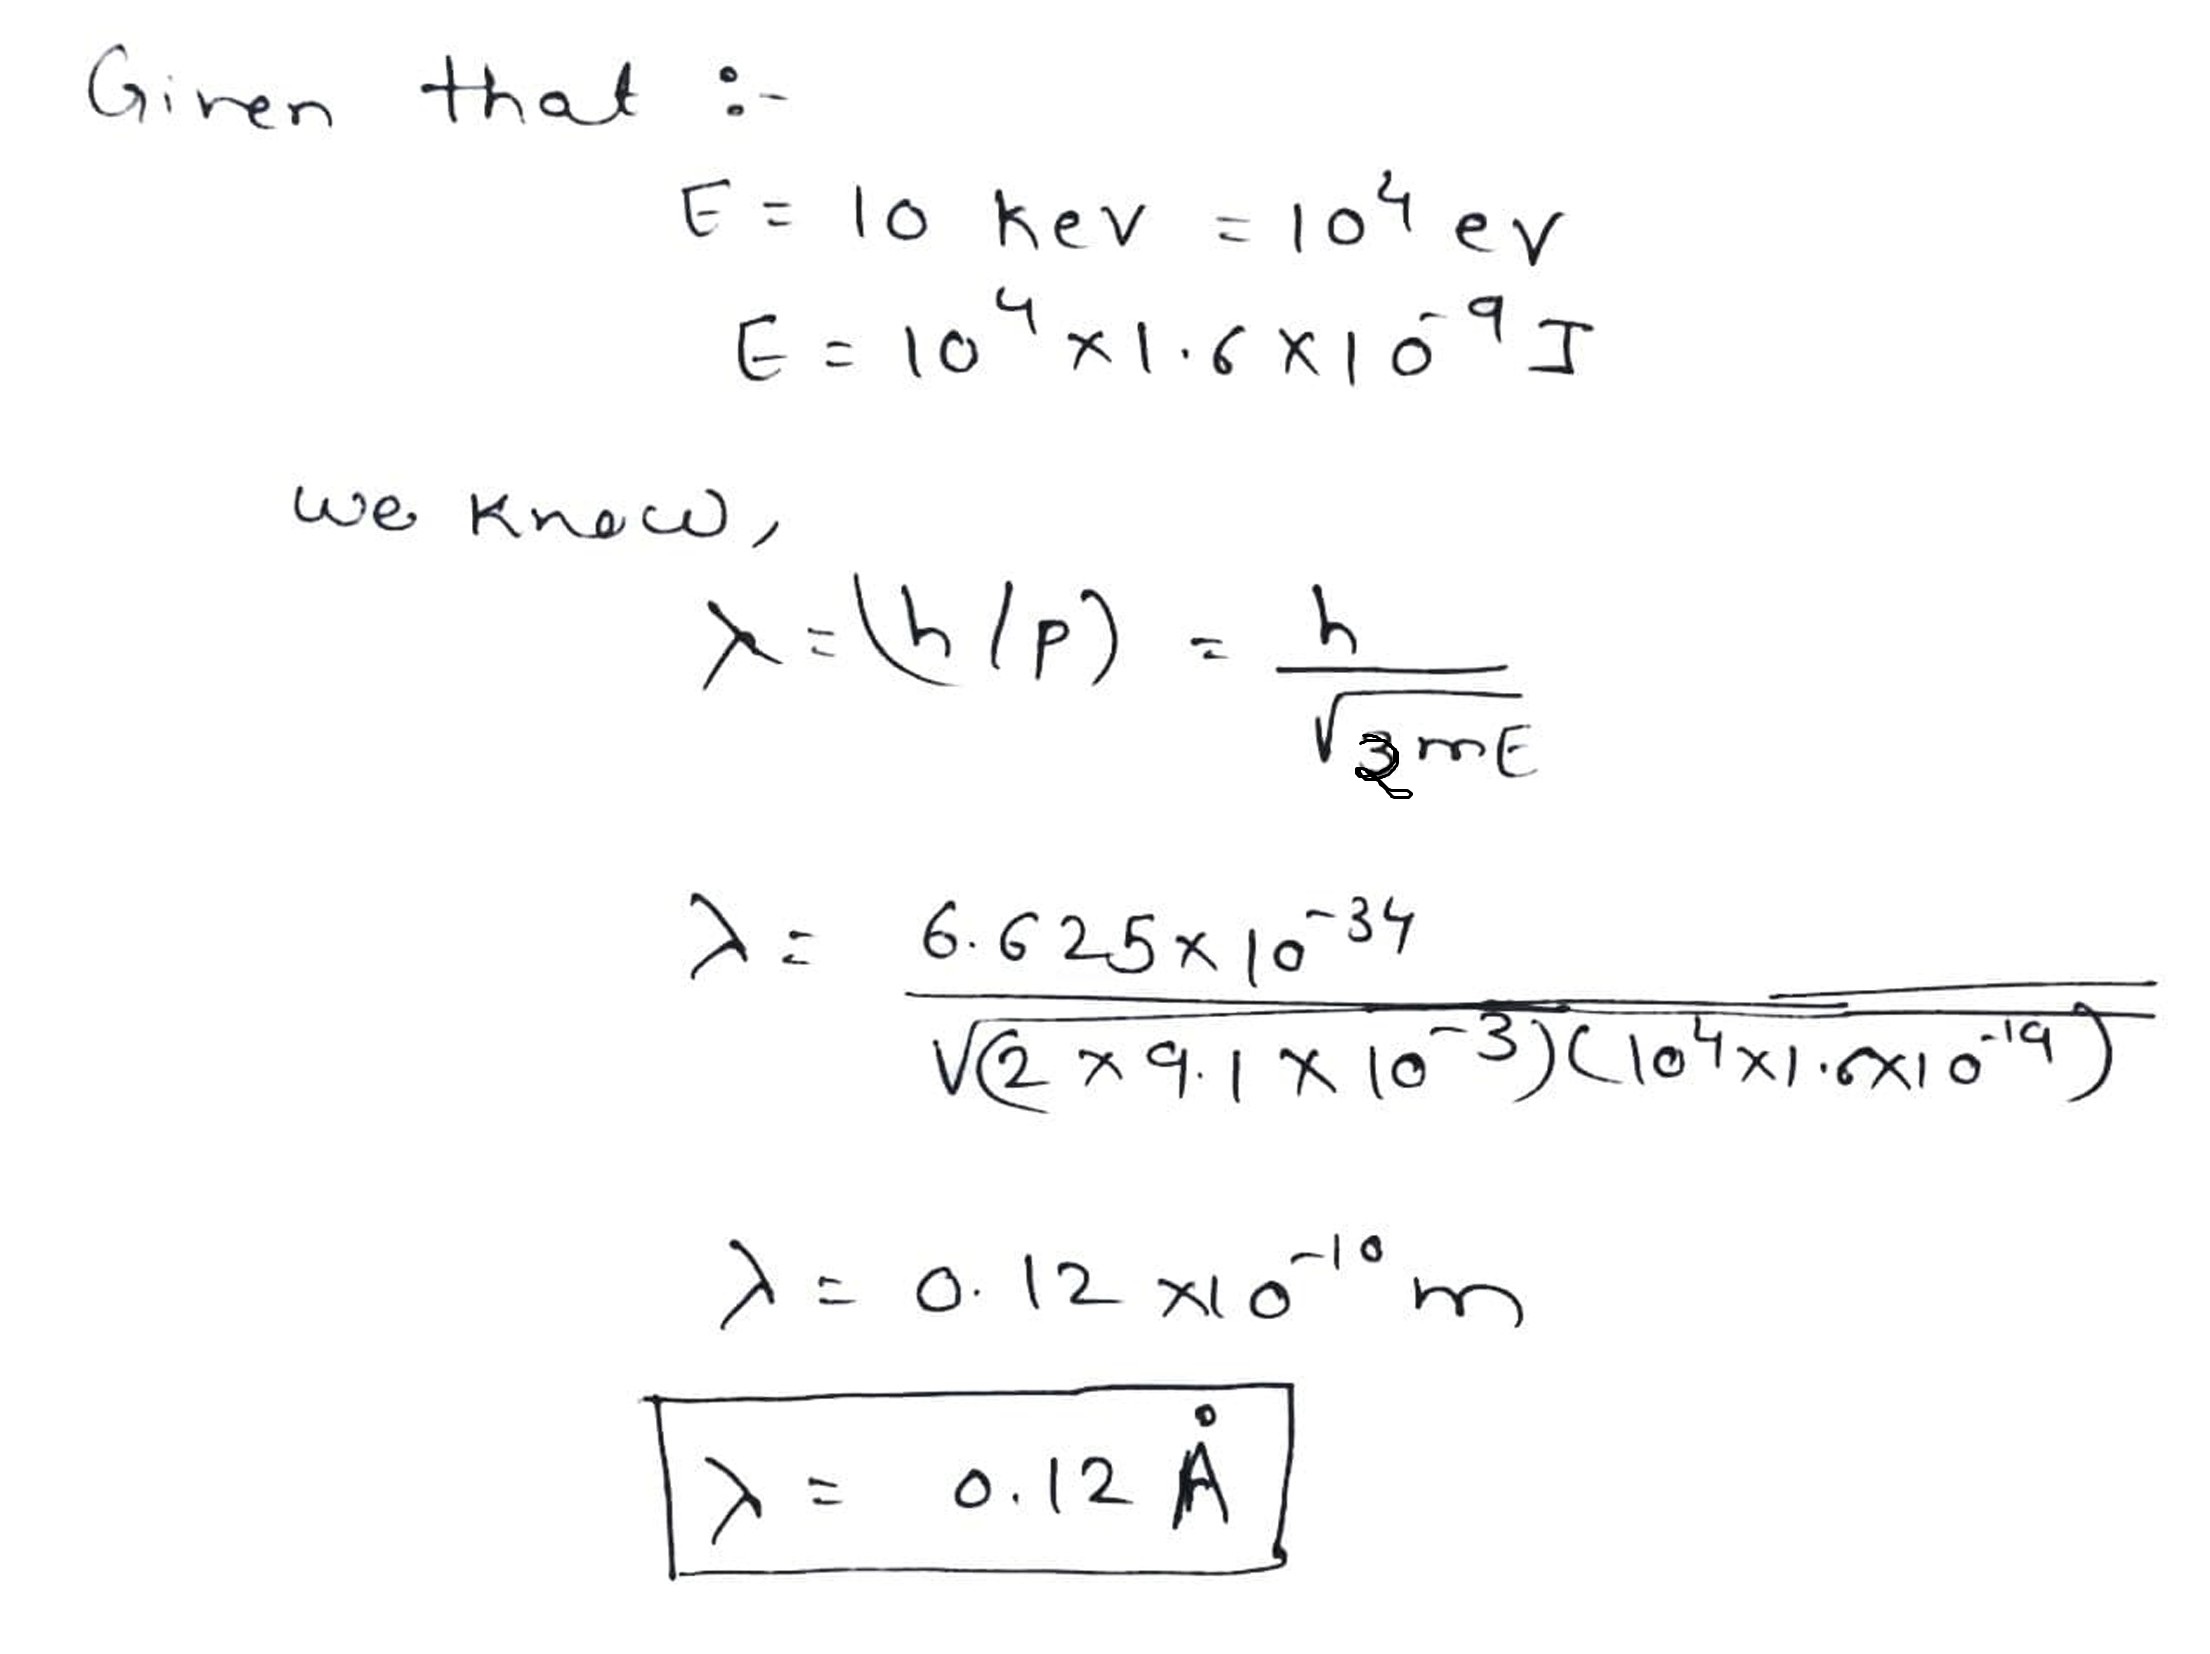 Given that :-
E = 10 kev = 10⁴ ev
E = 10⁴ × 1.6 × 10⁻⁹ J
we know,
λ = (h/p) = h / √2mE
λ = 6.625 × 10⁻³⁴ / √(2 × 9.1 × 10⁻³)(10⁴ × 1.6 × 10⁻¹⁹)
λ = 0.12 × 10⁻¹⁰ m
λ = 0.12 Å